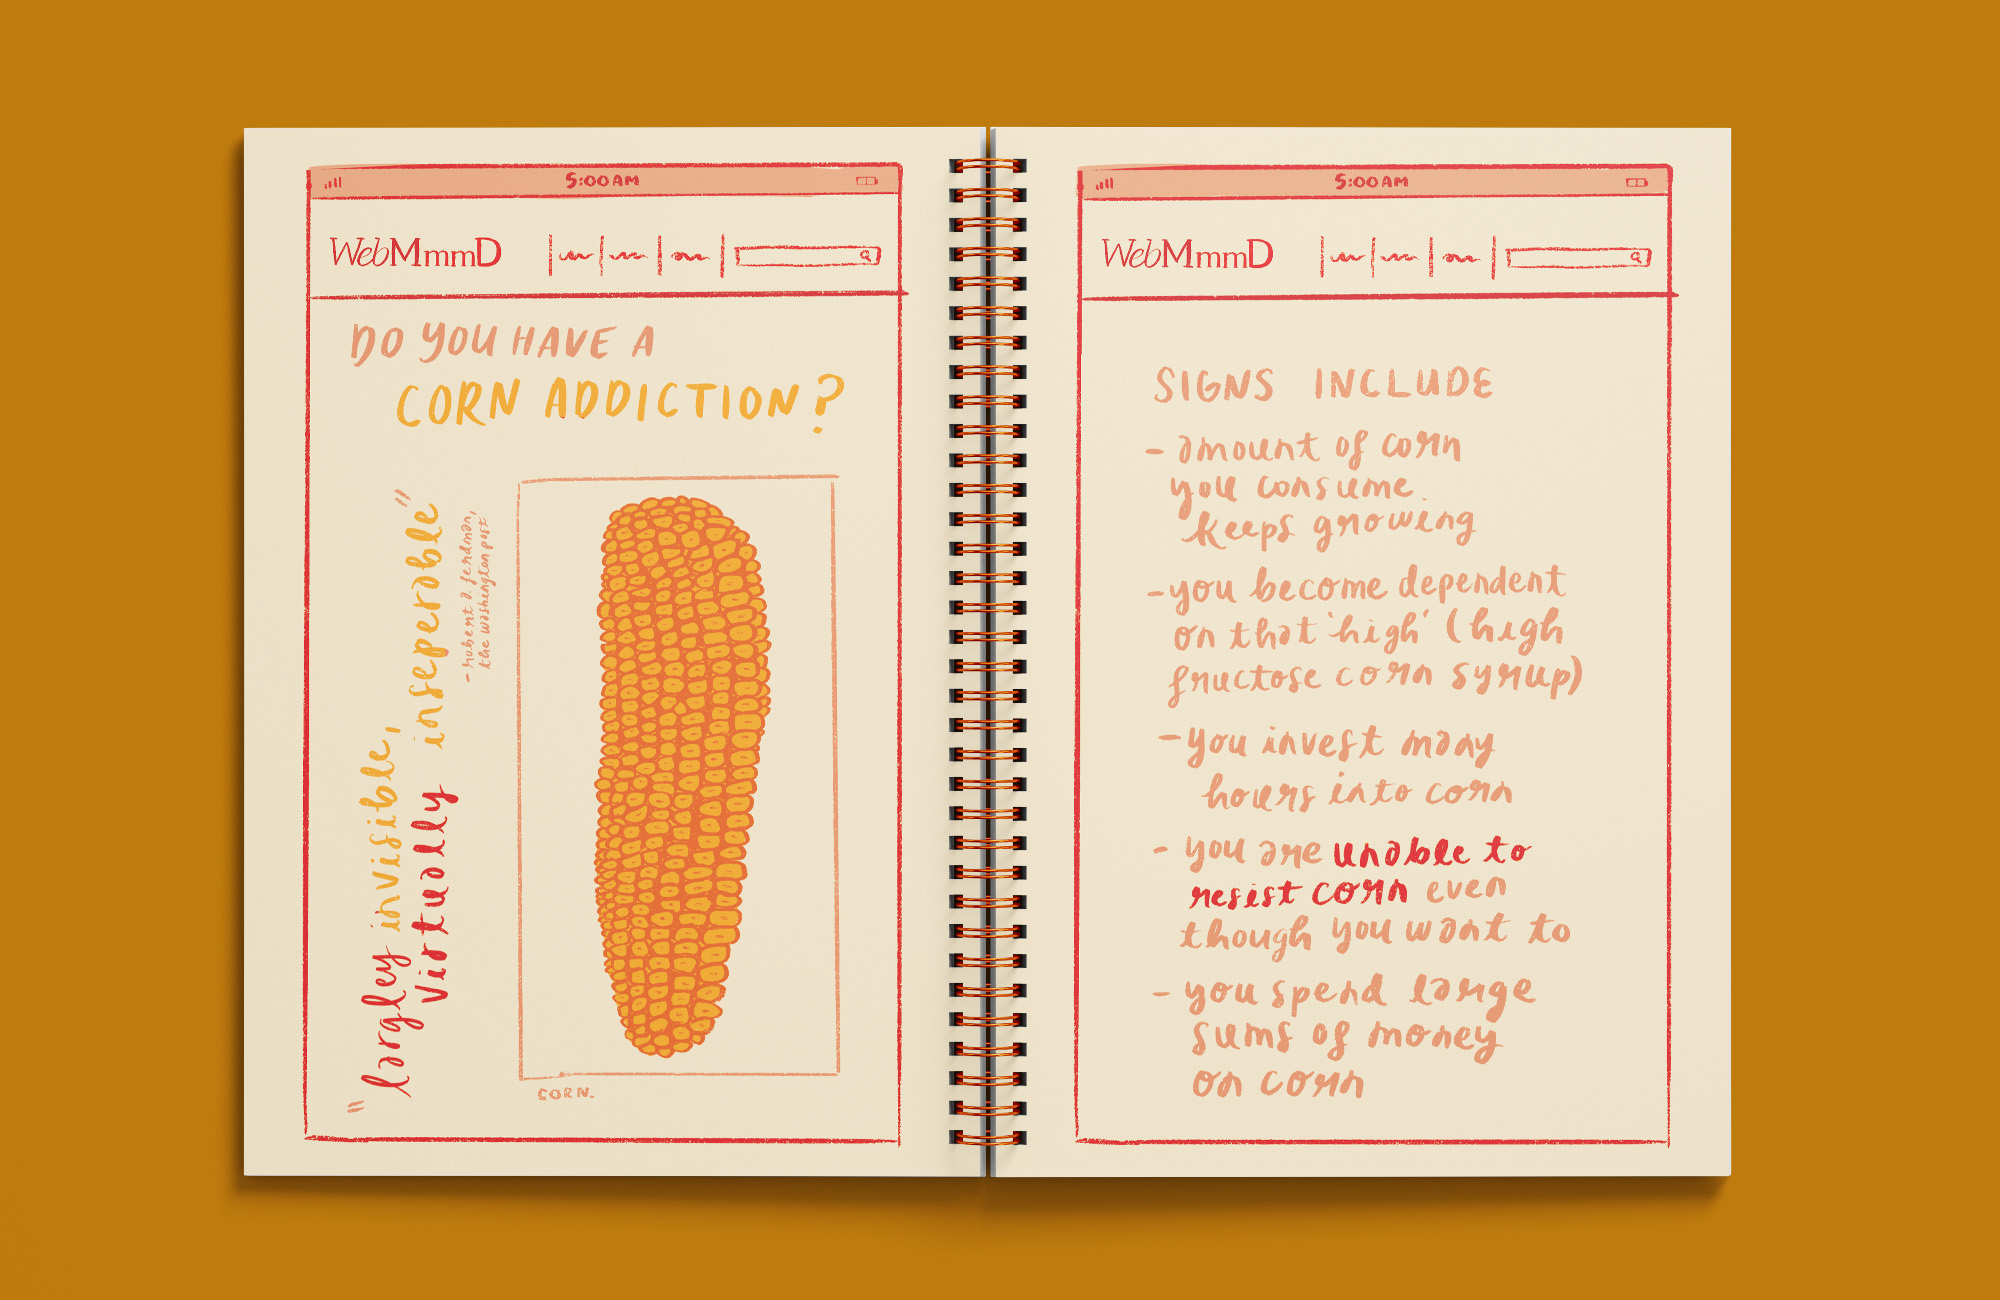 5:00AM
WebMmmD
DO YOU HAVE A
CORN ADDICTION?
"largley invisible,
virtually inseperable"
- robert a. ferdman,
the washington post
CORN.
5:00AM
WebMmmD
SIGNS INCLUDE
- amount of corn
you consume
keeps growing
- you become dependent
on that 'high' (high
fructose corn syrup)
- you invest many
hours into corn
- you are unable to
resist corn even
though you want to
- you spend large
sums of money
on corn